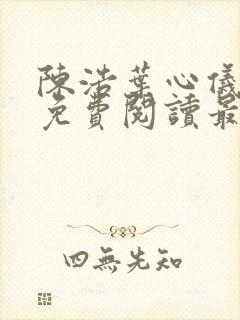 陳浩葉心儀
免費閱讀最
四無先知